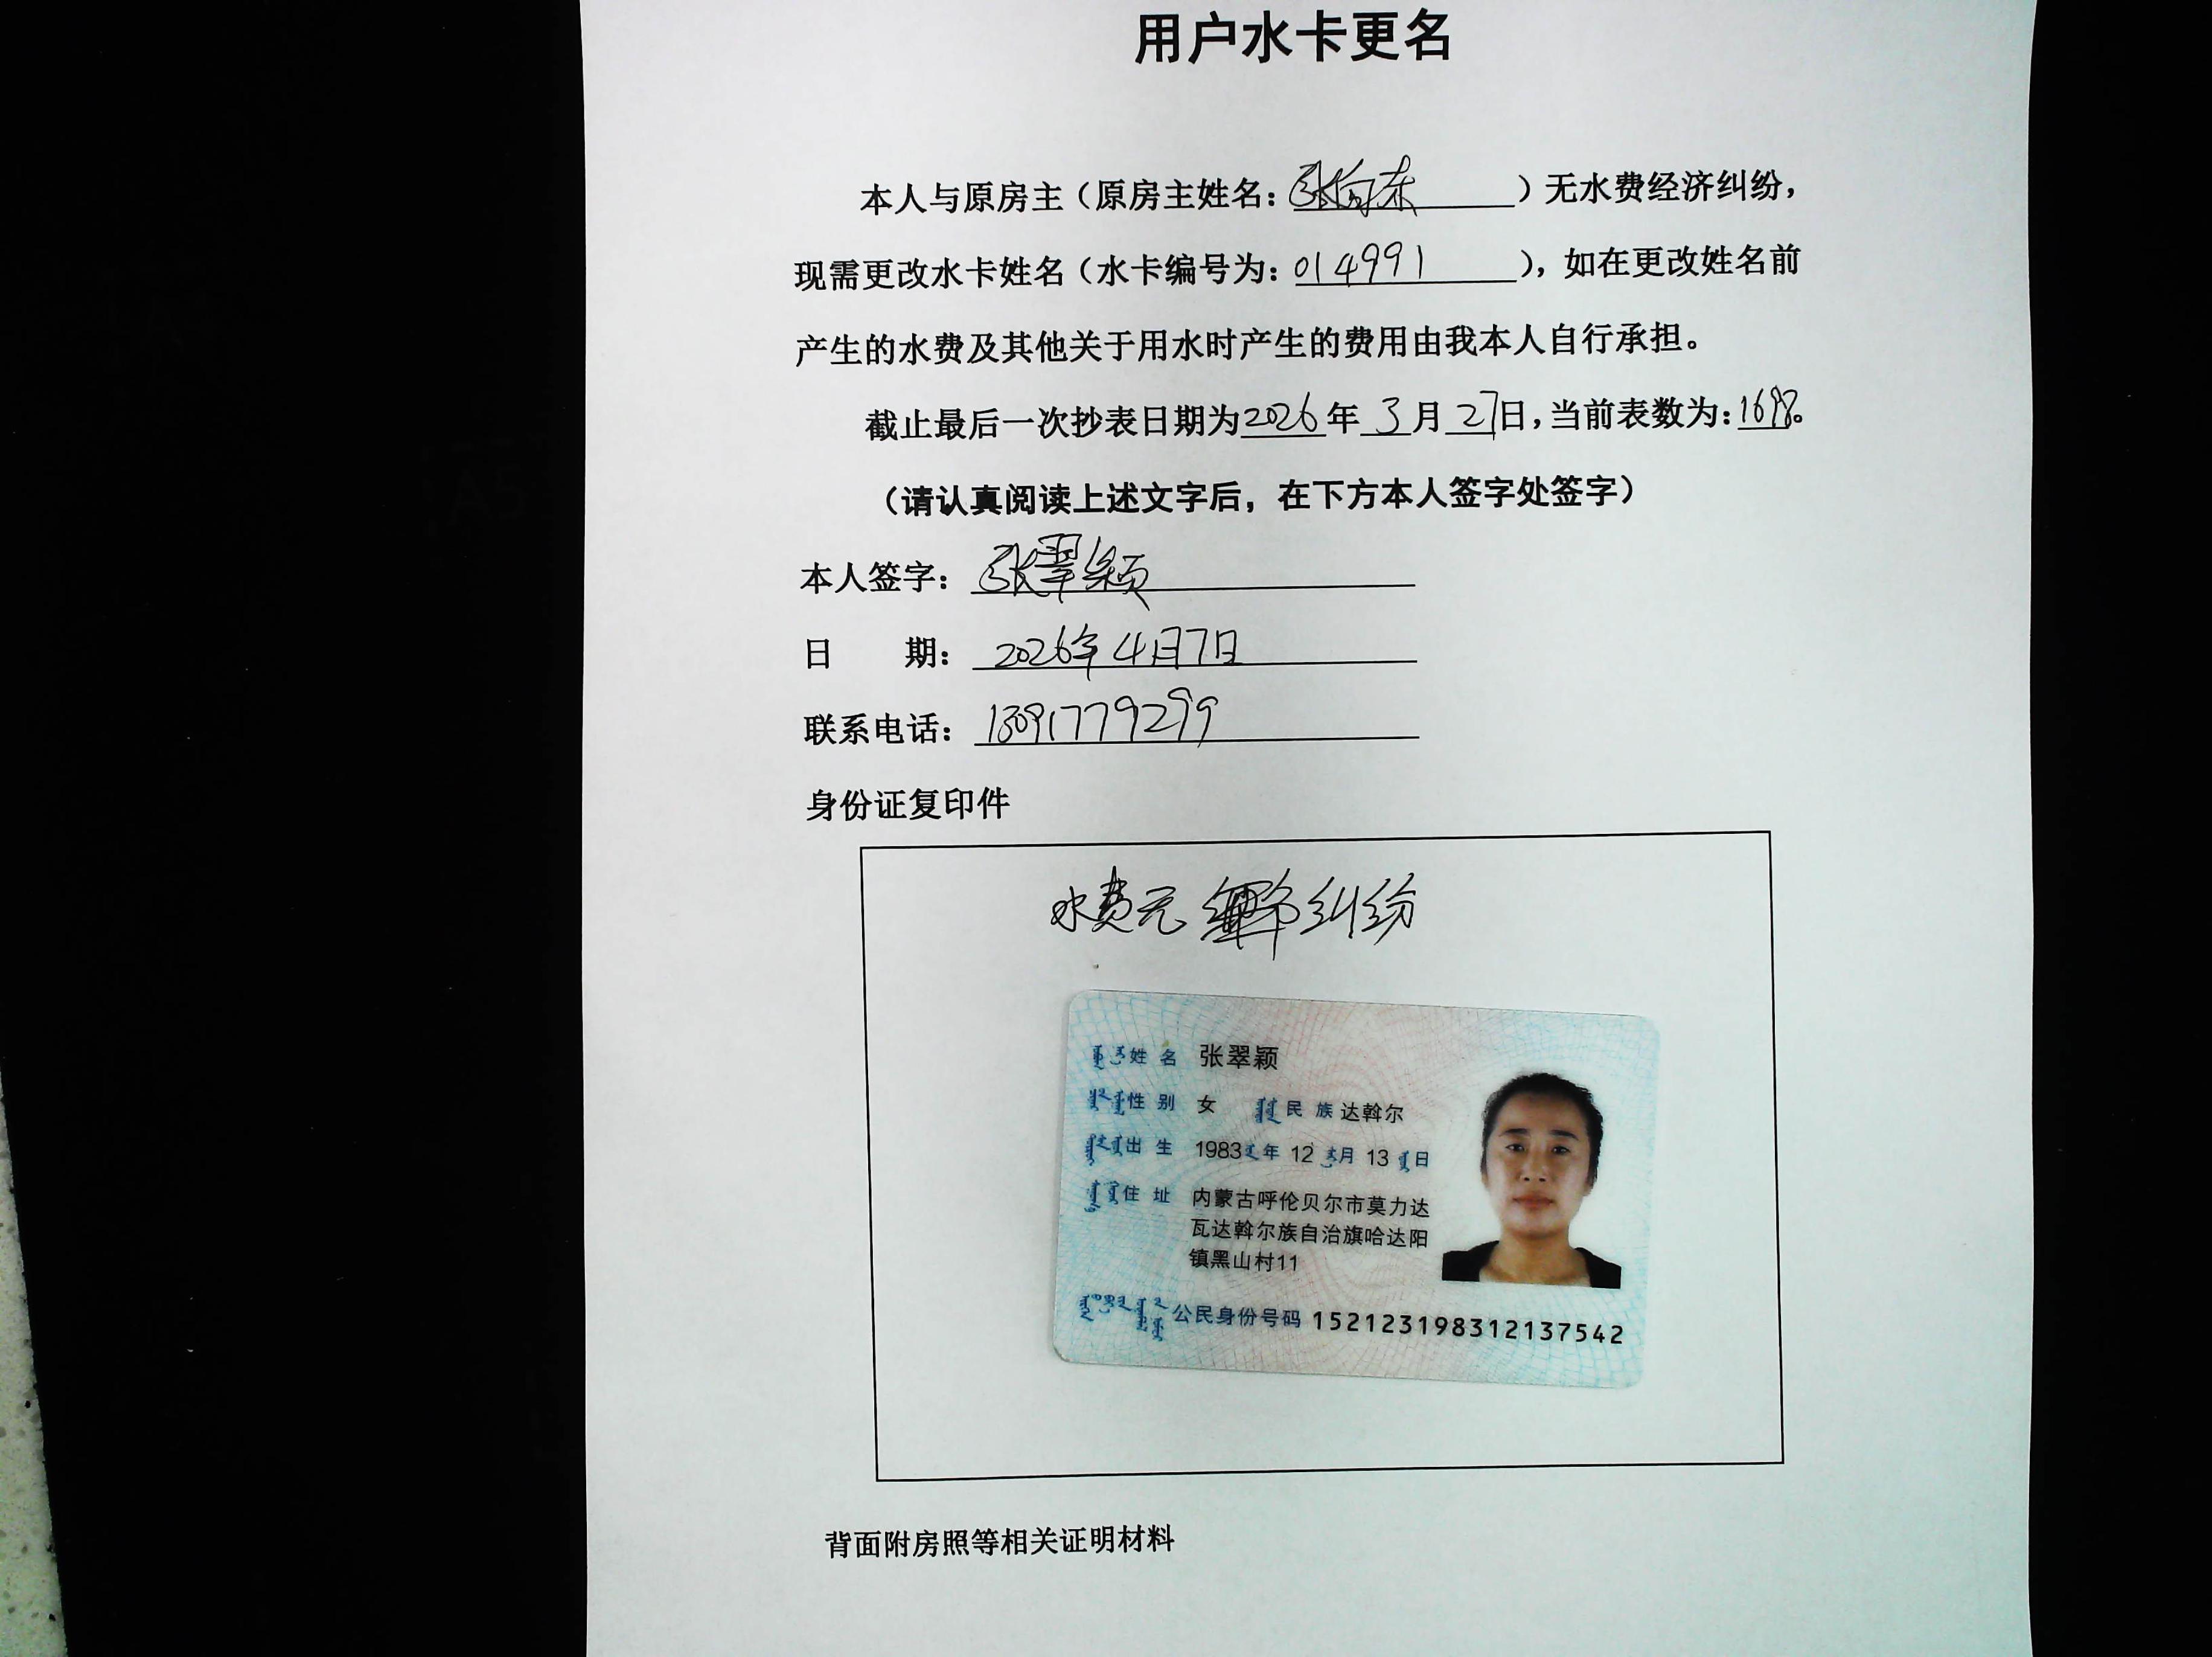 用户水卡更名
本人与原房主（原房主姓名：张向东）无水费经济纠纷，
现需更改水卡姓名（水卡编号为：014991），如在更改姓名前
产生的水费及其他关于用水时产生的费用由我本人自行承担。
截止最后一次抄表日期为2026年3月27日，当前表数为：1698。
（请认真阅读上述文字后，在下方本人签字处签字）
本人签字：张翠颖
日 期：2026年4月7日
联系电话：13091779299
身份证复印件
水费无 纠纷
姓名 张翠颖
性别 女 民族 达斡尔
出生 1983年12月13日
住址 内蒙古呼伦贝尔市莫力达
瓦达斡尔族自治旗哈达阳
镇黑山村11
公民身份号码 152123198312137542
背面附房照等相关证明材料